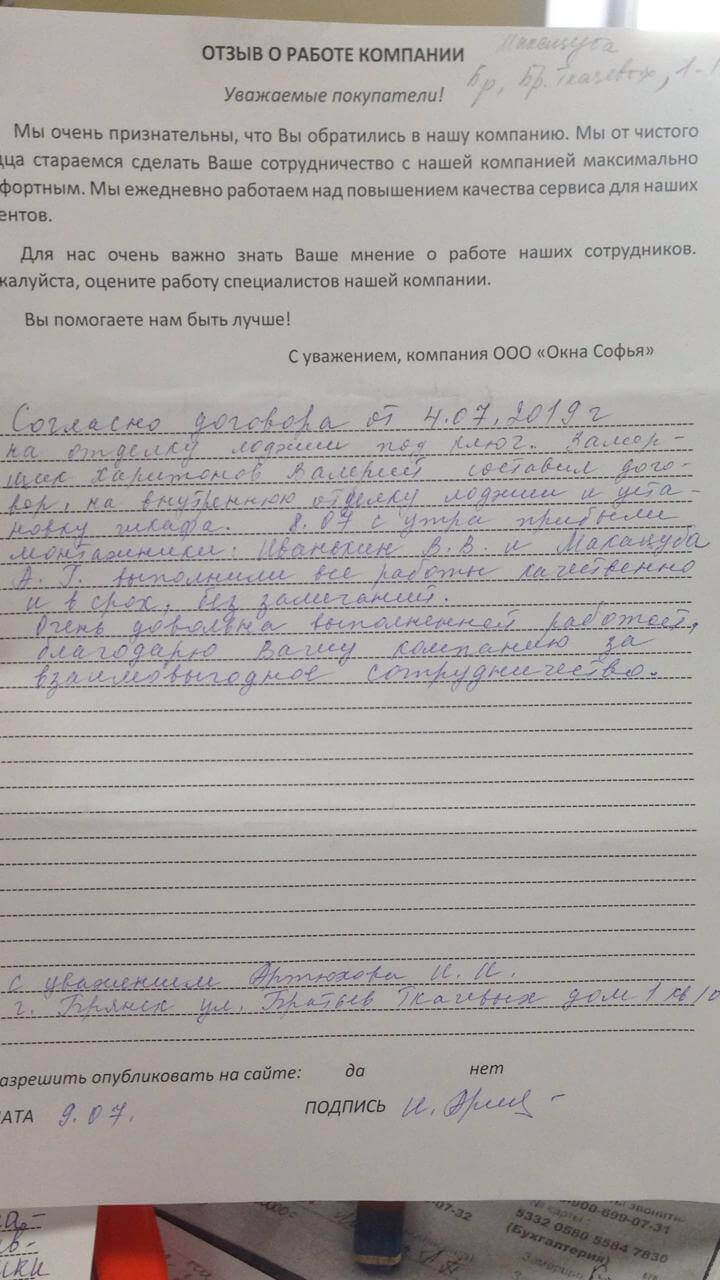 ОТЗЫВ О РАБОТЕ КОМПАНИИ
Макацуба
Бр, Бр. Ткачевых, 1-1
Уважаемые покупатели!
Мы очень признательны, что Вы обратились в нашу компанию. Мы от чистого
дца стараемся сделать Ваше сотрудничество с нашей компанией максимально
фортным. Мы ежедневно работаем над повышением качества сервиса для наших
ентов.
Для нас очень важно знать Ваше мнение о работе наших сотрудников.
жалуйста, оцените работу специалистов нашей компании.
Вы помогаете нам быть лучше!
С уважением, компания ООО «Окна Софья»
Согласно договора от 4.07.2019 г
на отделку лоджии под ключ. Замер-
щик Харитонов Валерий составил дого-
вор, на внутреннюю отделку лоджии и уста-
новку шкафа. 8.07 с утра прибыли
монтажники: Иванькин В. В. и Макацуба
А. Г. выполнили все работы качественно
и в срок, без замечаний.
Очень довольна выполненной работой,
благодарю Вашу компанию за
взаимовыгодное сотрудничество.
с уважением Артюхова И. И.
г. Брянск ул. Братьев Ткачевых дом 1 кв 10
азрешить опубликовать на сайте: да нет
АТА 9.07. ПОДПИСЬ
ва-
ив-
ики
07-32
звонить
-900-699-07-31
№ карты:
5332 0580 5584 7830
(Бухгалтерия)